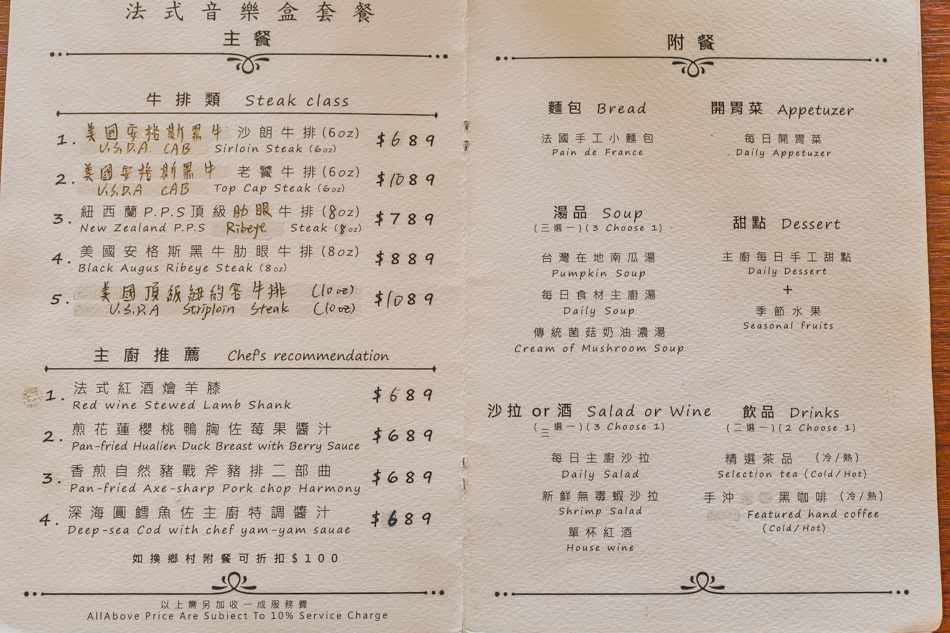 法式音樂盒套餐
主餐
牛排類 Steak class
1. 美國安格斯黑牛 沙朗牛排(6oz) $689
U.S.D.A CAB Sirloin Steak (6oz)
2. 美國安格斯黑牛 老饕牛排(6oz) $1089
U.S.D.A CAB Top Cap Steak (6oz)
3. 紐西蘭P.P.S頂級肋眼牛排(8oz) $789
New Zealand P.P.S Ribeye Steak (8oz)
4. 美國安格斯黑牛肋眼牛排(8oz) $889
Black Augus Ribeye Steak (8oz)
5. 美國頂級紐約客牛排 (10oz) $1089
U.S.D.A Striploin Steak (10oz)
主廚推薦 Chef's recommendation
1. 法式紅酒燴羊膝 $689
Red wine Stewed Lamb Shank
2. 煎花蓮櫻桃鴨胸佐莓果醬汁 $689
Pan-fried Hualien Duck Breast with Berry Sauce
3. 香煎自然豬戰斧豬排二部曲 $689
Pan-fried Axe-sharp Pork chop Harmony
4. 深海圓鱈魚佐主廚特調醬汁 $689
Deep-sea Cod with chef yam-yam sauae
如換鄉村附餐可折扣$100
以上需另加收一成服務費
AllAbove Price Are Subiect To 10% Service Charge
附餐
麵包 Bread
法國手工小麵包
Pain de France
開胃菜 Appetuzer
每日開胃菜
Daily Appetuzer
湯品 Soup
(三選一)(3 Choose 1)
台灣在地南瓜湯
Pumpkin Soup
每日食材主廚湯
Daily Soup
傳統菌菇奶油濃湯
Cream of Mushroom Soup
甜點 Dessert
主廚每日手工甜點
Daily Dessert
+
季節水果
Seasonal fruits
沙拉 or 酒 Salad or Wine
(三選一)(3 Choose 1)
每日主廚沙拉
Daily Salad
新鮮無毒蝦沙拉
Shrimp Salad
單杯紅酒
House wine
飲品 Drinks
(二選一)(2 Choose 1)
精選茶品 (冷/熱)
Selection tea (Cold/Hot)
手沖 黑咖啡 (冷/熱)
Featured hand coffee
(Cold/Hot)